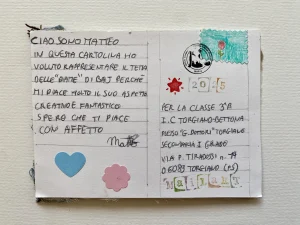 CIAO SONO MATTEO
IN QUESTA CARTOLINA HO
VOLUTO RAPPRESENTARE IL TEMA
DELLE "DAME" DI BAJ PERCHÉ
MI PIACE MOLTO IL SUO ASPETTO
CREATIVO E FANTASTICO
SPERO CHE TI PIACE
CON AFFETTO
Matteo
2025
PER LA CLASSE 3ªA
I.C TORGIANO-BETTONA
PLESSO "G. DOTTORI" TORGIANO
SECONDARIA I GRADO
VIA P. TIRADOSSI n. 19
06089 TORGIANO (PG)
MAIL ART